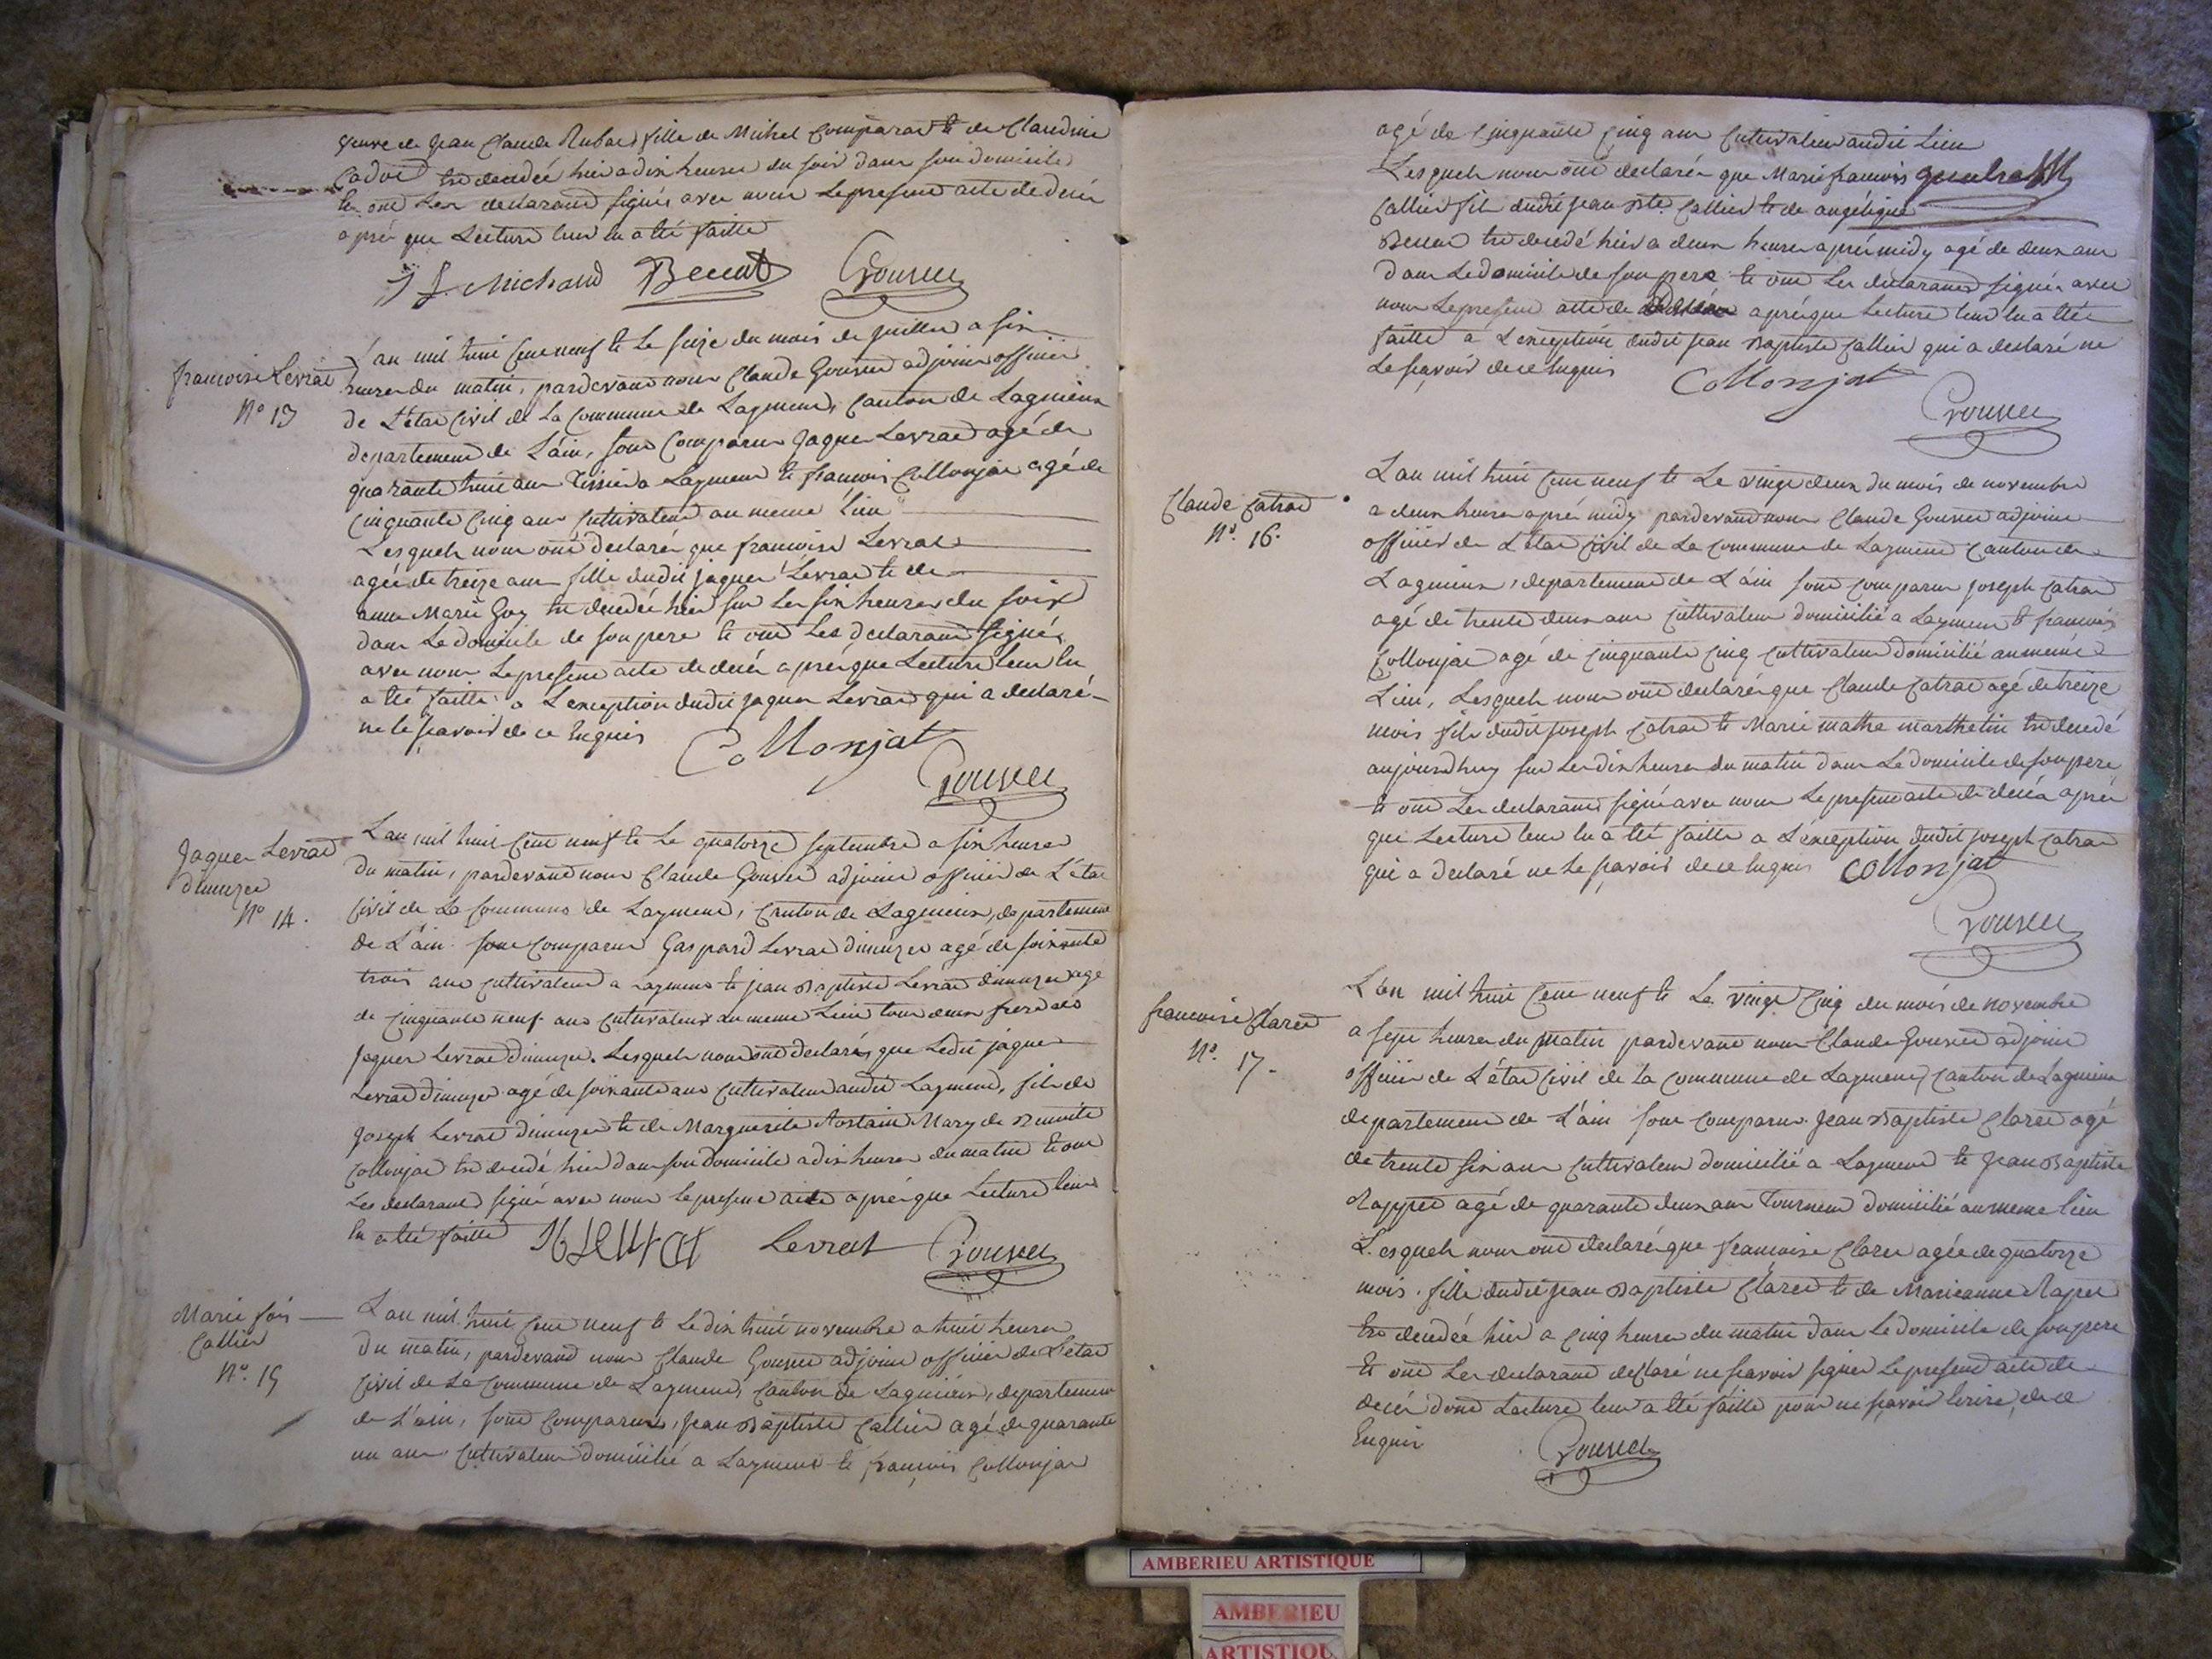 veuve de Jean Claude Rubat fille de Michel Comparat et de Claudine
Cadot est decedée hier a dix heures du soir dans son domicile
et ont Les declarants signés avec nous Le present acte de décés
aprés que Lecture leur en a été faitte
Michaud Becuat Gouvet
francoise Levrat
N° 13
L'an mil huit Cent neuf et le seize du mois de juillet a six
heures du matin, pardevant nous Claude Gouvet adjoint officier
de L'état Civil de La Commune de Lagment, Canton de Lagnieux
departement de L'ain, sont Comparus Jaques Levrat agé de
quarante huit ans Tissier a Lagment et francois Collonjat agé de
Cinquante Cinq ans Cultivateur au meme Lieu
Lesquels nous ont declarés que francoise Levrat
agée de treize ans fille dudit jaques Levrat et de
anne Marie Goy est decedée hier sur Les six heures du soir
dans Le domicile de son pere et ont Les declarants signés
avec nous Le present acte de decés aprés que Lecture leur en
a été faitte a L'exception dudit jaques Levrat qui a declaré
ne le sçavoir de ce Enquis
Collonjat
Gouvet
Jaques Levrat
dimuzer
N° 14.
L'an mil huit Cent neuf et Le quatorze septembre a six heures
du matin, pardevant nous Claude Gouvet adjoint officier de L'état
Civil de La Commune de Lagment, Canton de Lagnieux, departement
de L'ain. sont Comparus Gaspard Levrat dimuzer agé de soixante
trois ans Cultivateur a Lagment et jean Baptiste Levrat dimuzer agé
de Cinquante neuf ans Cultivateur au meme Lieu tous deux freres de
Jaques Levrat dimuzer. Lesquels nous ont declarés que Ledit jaques
Levrat dimuzer agé de soixante ans Cultivateur audit Lagment, fils de
Joseph Levrat dimuzer et de Marguerite Mary de Benoite
Collonjat est decedé hier dans son domicile a dix heures du matin Et ont
Les declarants signé avec nous le present acte aprés que Lecture leur
En a été faitte
Levrat Gouvet
Marie fois
Callier
N°. 15
L'an mil huit Cent neuf et Le dix huit novembre a huit heures
du matin, pardevant nous Claude Gouvet adjoint officier de L'état
Civil de La Commune de Lagment, Canton de Lagnieux, departement
de L'ain, sont Comparus, Jean Baptiste Callier agé de quarante
un ans Cultivateur domicilié a Lagment et francois Collonjat
agé de Cinquante Cinq ans Cultivateur audit Lieu
Lesquels nous ont declarés que Marie francois
Callier fils dudit jean Bte. Callier et de angelique
est decedé hier a deux heures aprés midy agé de deux ans
dans Le domicile de son pere et ont Les declarants signés avec
nous Le present acte de aprés que Lecture leur en a été
faitte a L'exception dudit jean Baptiste Callier qui a declaré ne
Le sçavoir de ce Enquis
Collonjat
Gouvet
Claude Catrat
N°. 16.
L'an mil huit Cent neuf et Le vingt deux du mois de novembre
a deux heures aprés midy pardevant nous Claude Gouvet adjoint
officier de L'état Civil de La Commune de Lagment Canton de
Lagnieux, departement de L'ain sont Comparus Joseph Catrat
agé de trente deux ans Cultivateur domicilié a Lagment et francois
Collonjat agé de Cinquante Cinq Cultivateur domicilié au même
Lieu, Lesquels nous ont declarés que Claude Catrat agé de treize
mois fils dudit joseph Catrat et Marie mathe marthelin est decedé
aujourdhuy sur Les dix heures du matin dans Le domicile de son pere
et ont Les declarants signé avec nous Le present acte de décés aprés
que Lecture leur en a été faitte a L'éxception dudit joseph Catrat
qui a declaré ne Le sçavoir de ce Enquis Collonjat
Gouvet
francoise Claret
N°. 17.
L'an mil huit Cent neuf et Le vingt Cinq du mois de novembre
a sept heures du matin pardevant nous Claude Gouvet adjoint
officier de L'état Civil de la Commune de Lagment, Canton de Lagnieux
departement de L'ain sont Comparus Jean Baptiste Claret agé
de trente six ans Cultivateur domicilié a Lagment et Jean Baptiste
Rappet agé de quarante deux ans Tourneur domicilié au meme Lieu
Lesquels nous ont declaré que francoise Claret agée de quatorze
mois. fille dudit jean Baptiste Claret et de Marieanne Rapet
Est decedée hier a Cinq heures du matin dans Le domicile de son pere
et ont Les declarants declaré ne sçavoir signer Le present acte de
decés dont Lecture leur a été faitte pour ne sçavoir Ecrire, de ce
Enquis
Gouvet
AMBERIEU ARTISTIQUE
AMBERIEU
ARTISTIQU